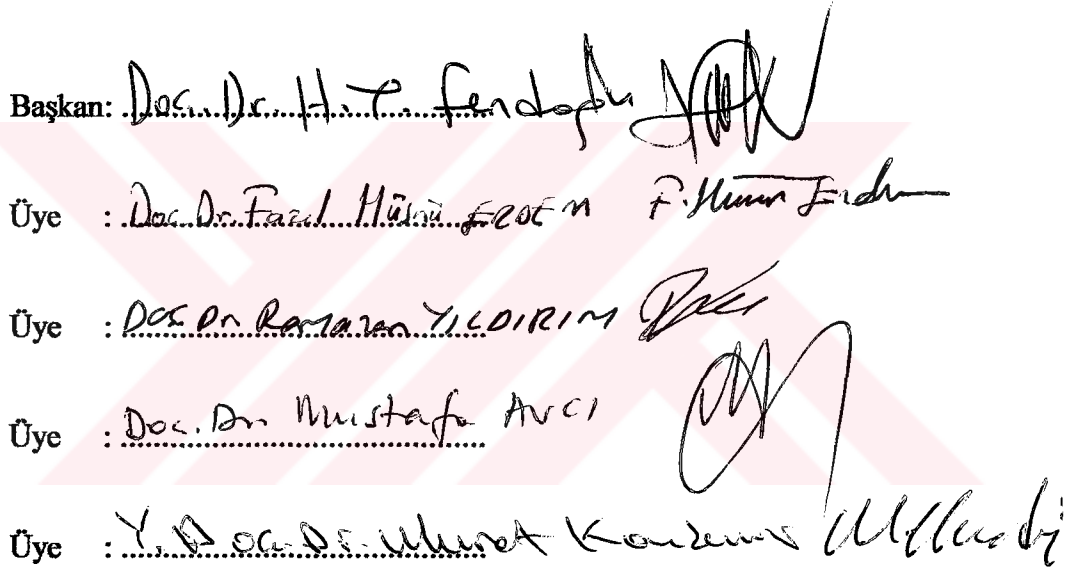 Başkan: Doç. Dr. H. T. Fendoğlu
Üye : Doc. Dr. Fazıl Hüsnü ERDEM F. Hüsnü Erdem
Üye : Doç Dr Ramazan YILDIRIM
Üye : Doç. Dr. Mustafa AVCI
Üye : Y. Doç. Dr. Murat